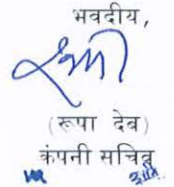 भवदीय,
(रूपा देव)
कंपनी सचिव